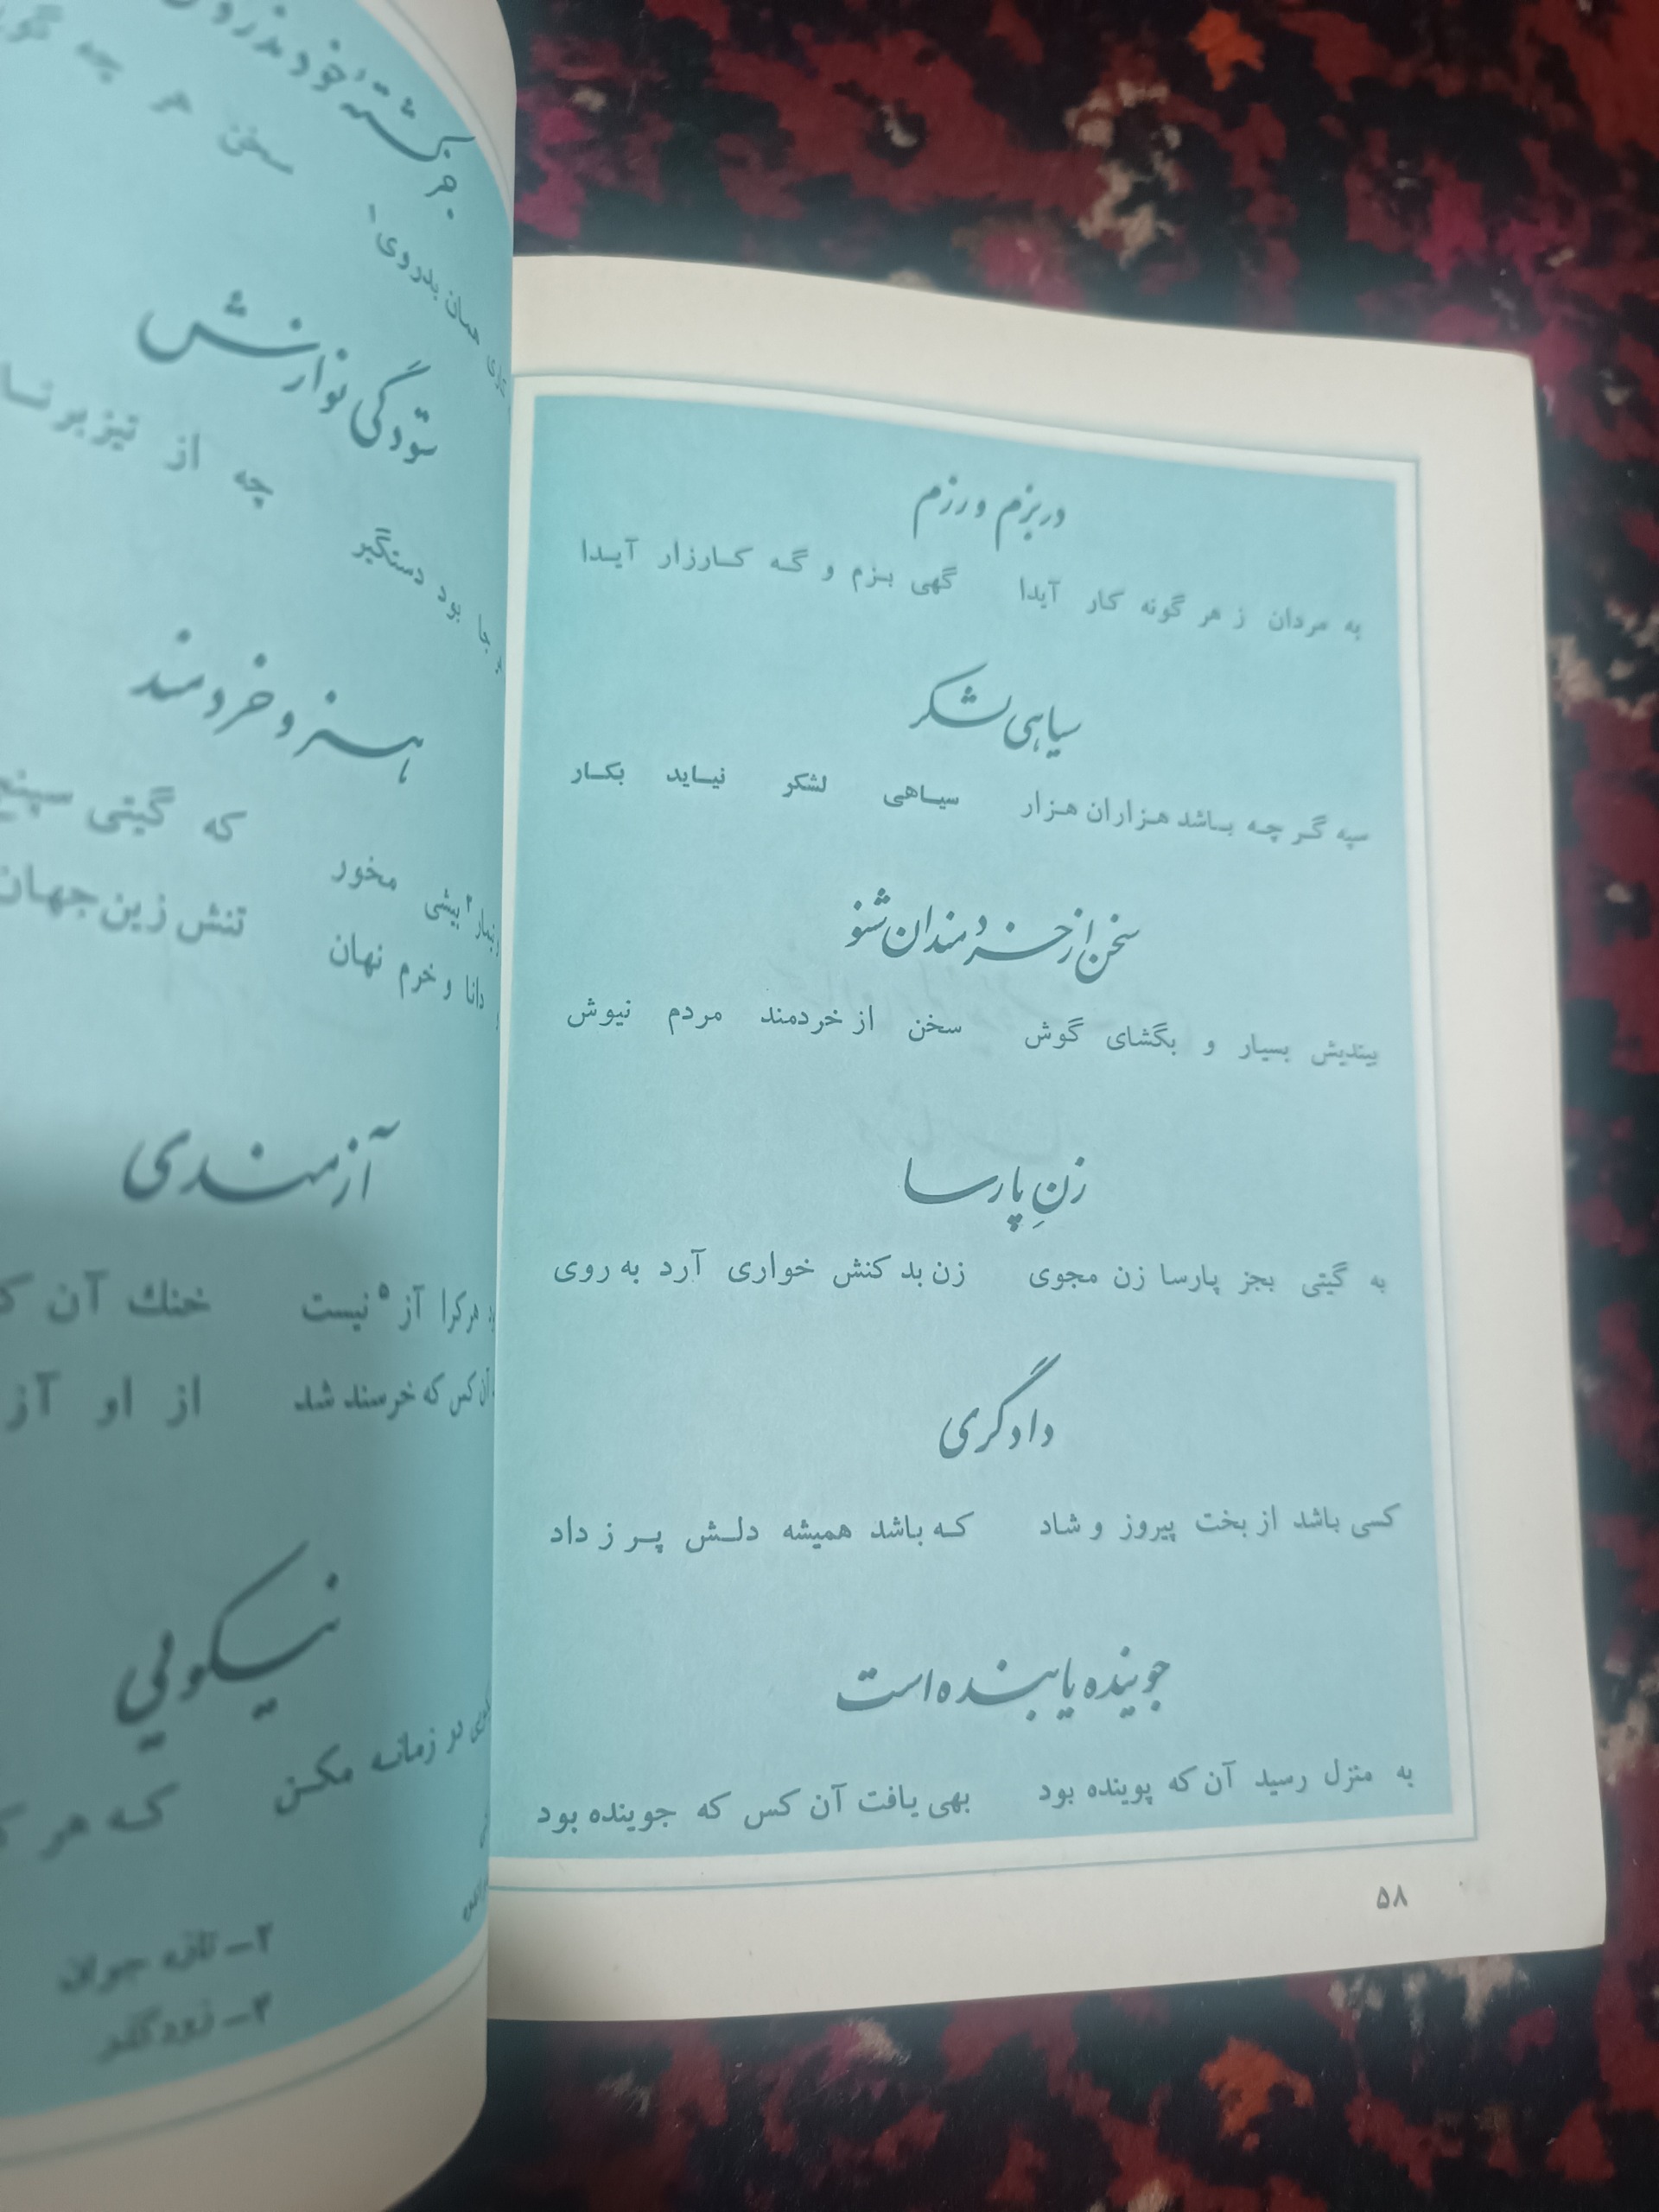 در بزم و رزم
به مردان ز هر گونه کار آیدا گهی بزم و گه کارزار آیدا
سیاهی لشکر
سپه گر چه باشد هزاران هزار سیاهی لشکر نیاید بکار
سخن از خردمندان شنو
بیندیش بسیار و بگشای گوش سخن از خردمند مردم نیوش
زنِ پارسا
به گیتی بجز پارسا زن مجوی زن بد کنش خواری آرد به روی
دادگری
کسی باشد از بخت پیروز و شاد که باشد همیشه دلش پر ز داد
جوینده یابنده است
به منزل رسید آن که پوینده بود بهی یافت آن کس که جوینده بود
۵۸
جز کشتهٔ خود ندروی
سخن هر چه
همان بدروی۱
ستودگی نوازش
چه از تیز برنا
جا بود دستگیر
هنر و خردمند
بیشی مخور که گیتی سپنج
دانا و خرم نهان تنش زین جهان
آزمندی
هر کرا آز۵ نیست خنك آن
آن کس که خرسند شد از او آز
نیکویی
در زمانه مکن که هر
۲ــ تازه جوان
۳ــ زودگذر